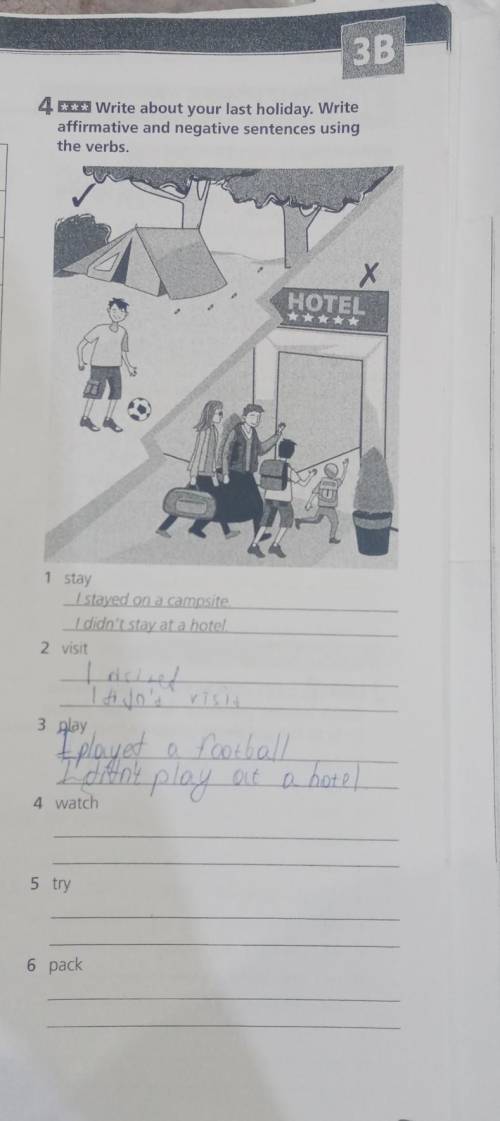 3B
4 *** Write about your last holiday. Write
affirmative and negative sentences using
the verbs.
HOTEL
1 stay
I stayed on a campsite.
I didn't stay at a hotel.
2 visit
I
I didn't visit
3 play
I played a football
I didn't play at a hotel
4 watch
5 try
6 pack